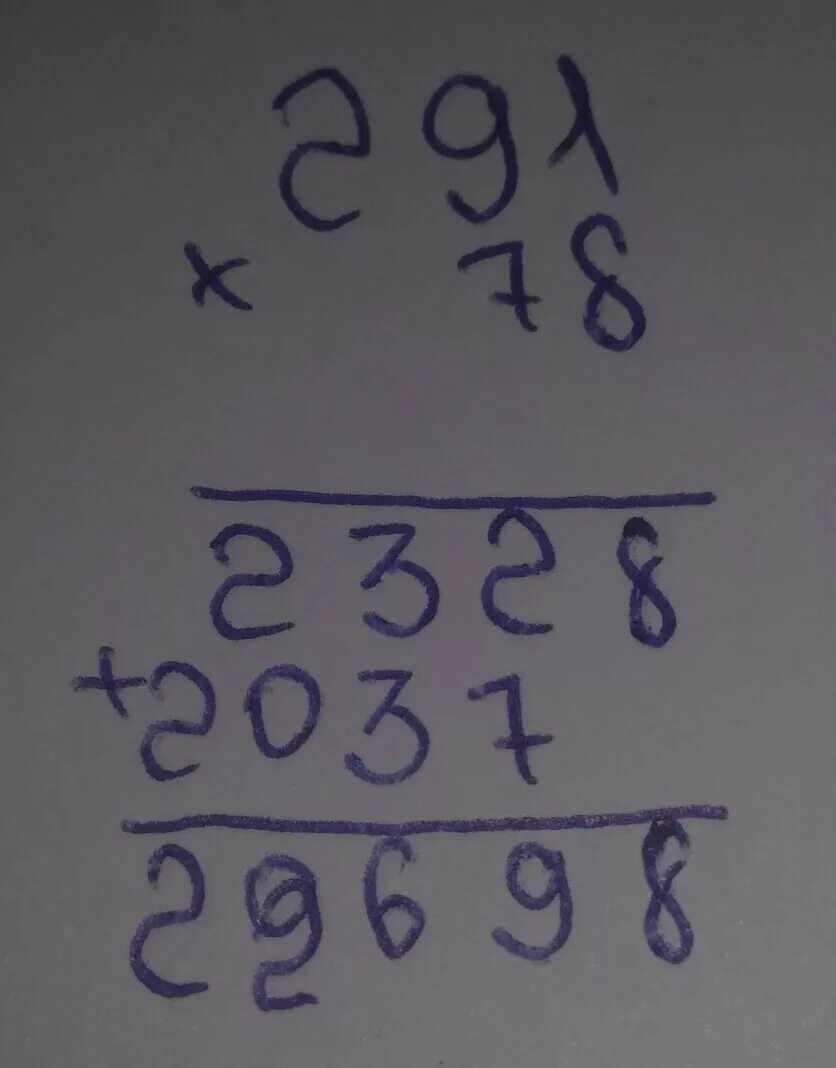 291
× 78
2328
+2037
22698